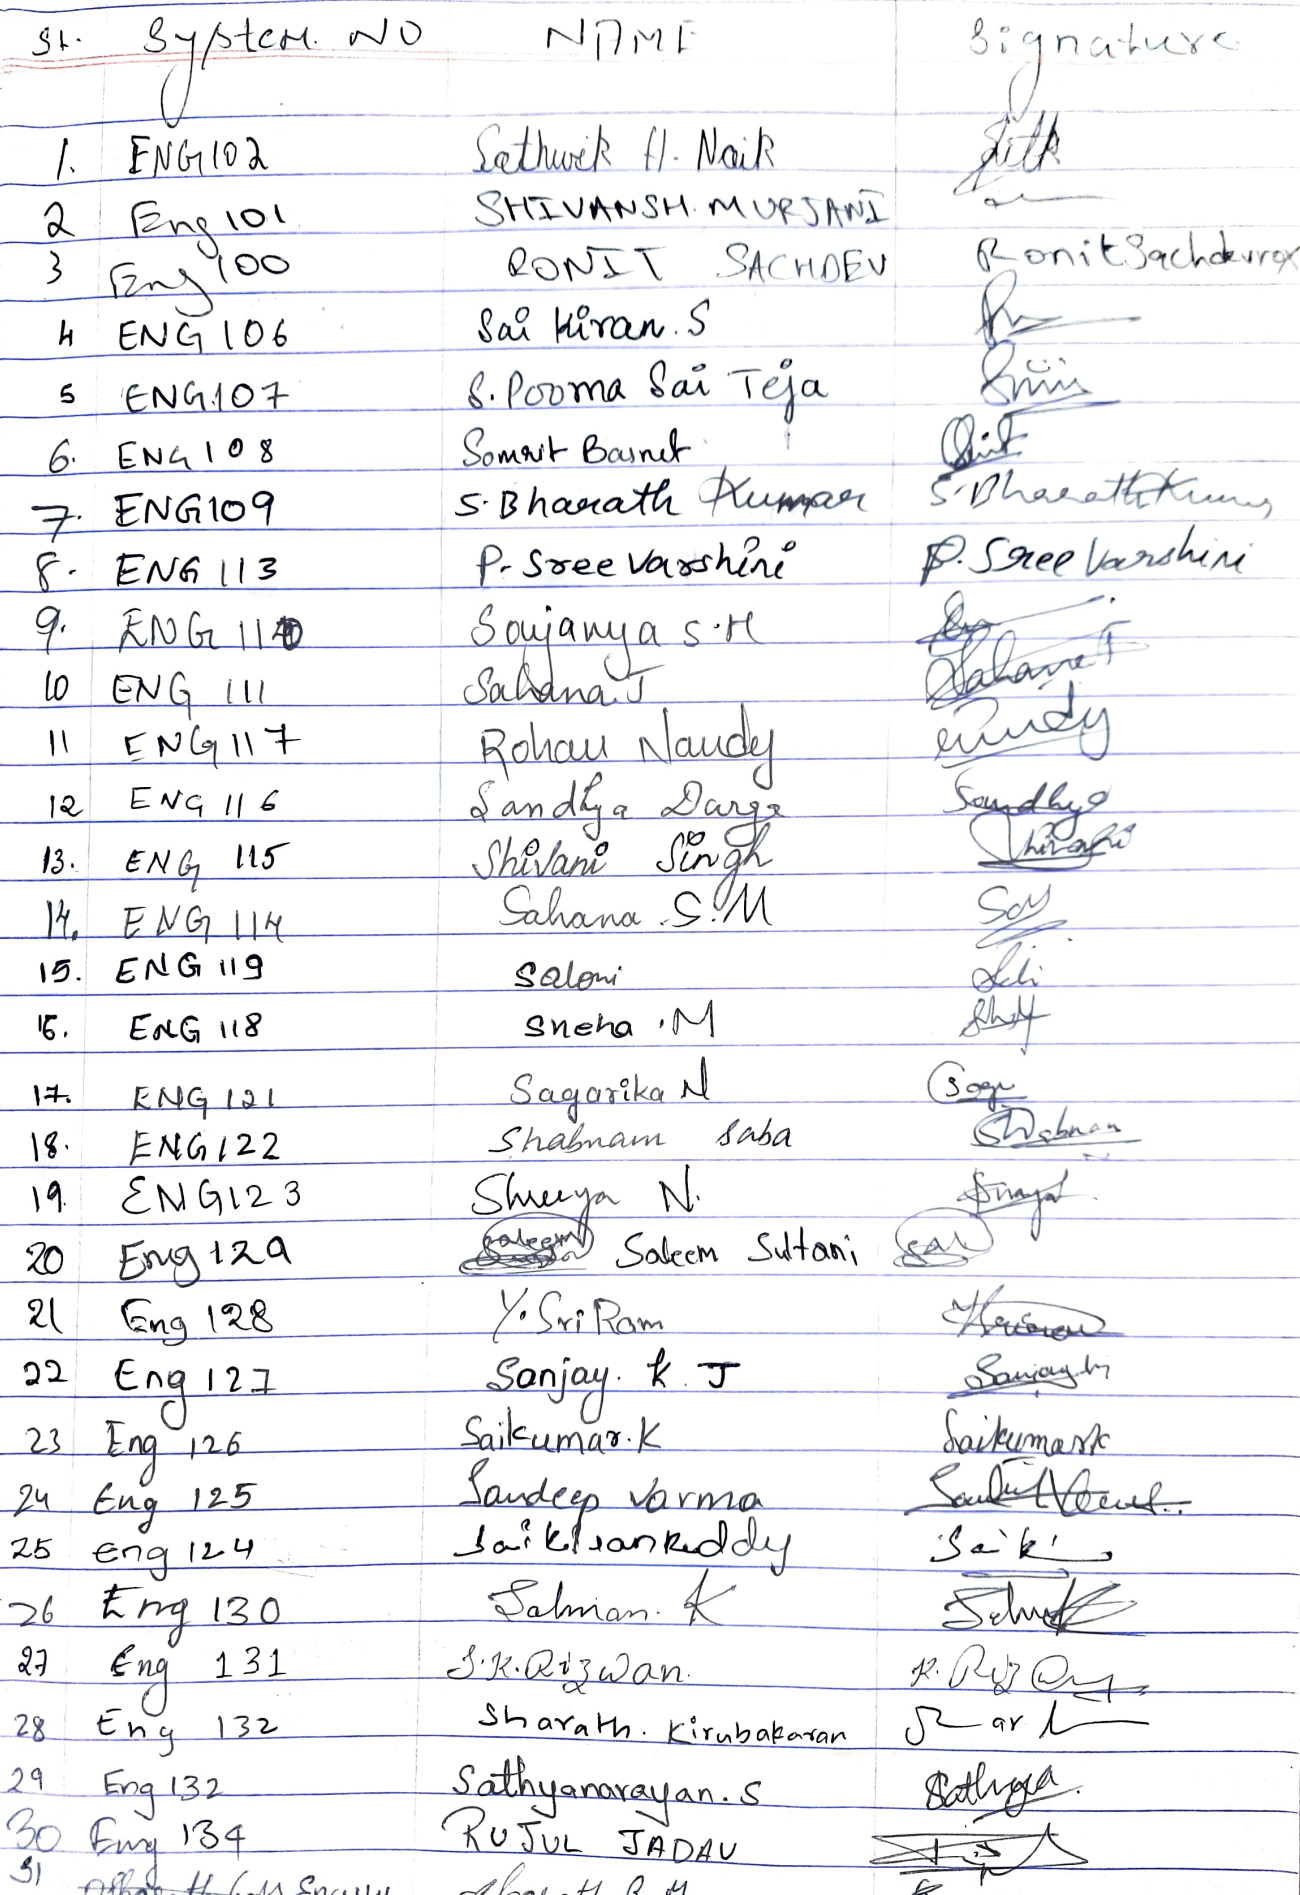 Sl. System. NO NAME Signature
1. ENG102 Sathwik H. Naik
2 Eng 101 SHIVANSH. MURJANI
3 Eng 100 RONIT SACHDEV Ronit Sachdev
4 ENG 106 Sai Kiran. S
5 ENG107 S. Poorna Sai Teja
6. ENG 108 Somrit Basnet
7. ENG109 S. Bharath Kumar S. Bharath Kumar
8. ENG 113 P. Sree Varshini P. Sree Varshini
9. ENG 110 Soujanya S.H
10 ENG 111 Sahana.J Sahana J
11 ENG 117 Rohan Nandy
12 ENG 116 Sandhya Darga Sandhya
13. ENG 115 Shivani Singh
14. ENG 114 Sahana S.M
15. ENG 119 Saloni
16. ENG 118 Sneha .M
17. ENG 121 Sagarika N
18. ENG122 Shabnam Saba Shabnam
19. ENG123 Shreya N.
20 Eng 129 Saleem Saleem Sultani Sal
21 Eng 128 Y. Sri Ram
22 Eng 127 Sanjay. K J
23 Eng 126 Saikumar.K Saikumar k
24 Eng 125 Sandeep Varma
25 Eng 124 Saikiran Reddy Saiki
26 Eng 130 Salman. K
27 Eng 131 S.K.Rizwan.
28 Eng 132 Sharath. Kirubakaran
29 Eng 132 Sathyanarayan.S Sathya
30 Eng 134 RUJUL JADAV
31